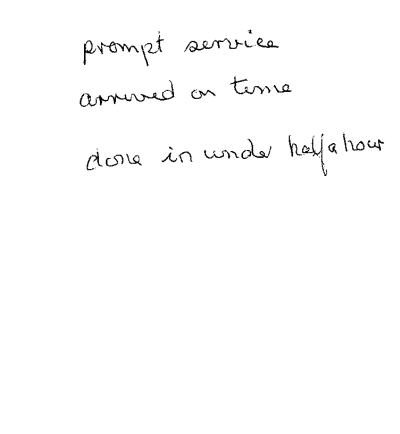 prompt service
arrived on time
done in under half a hour